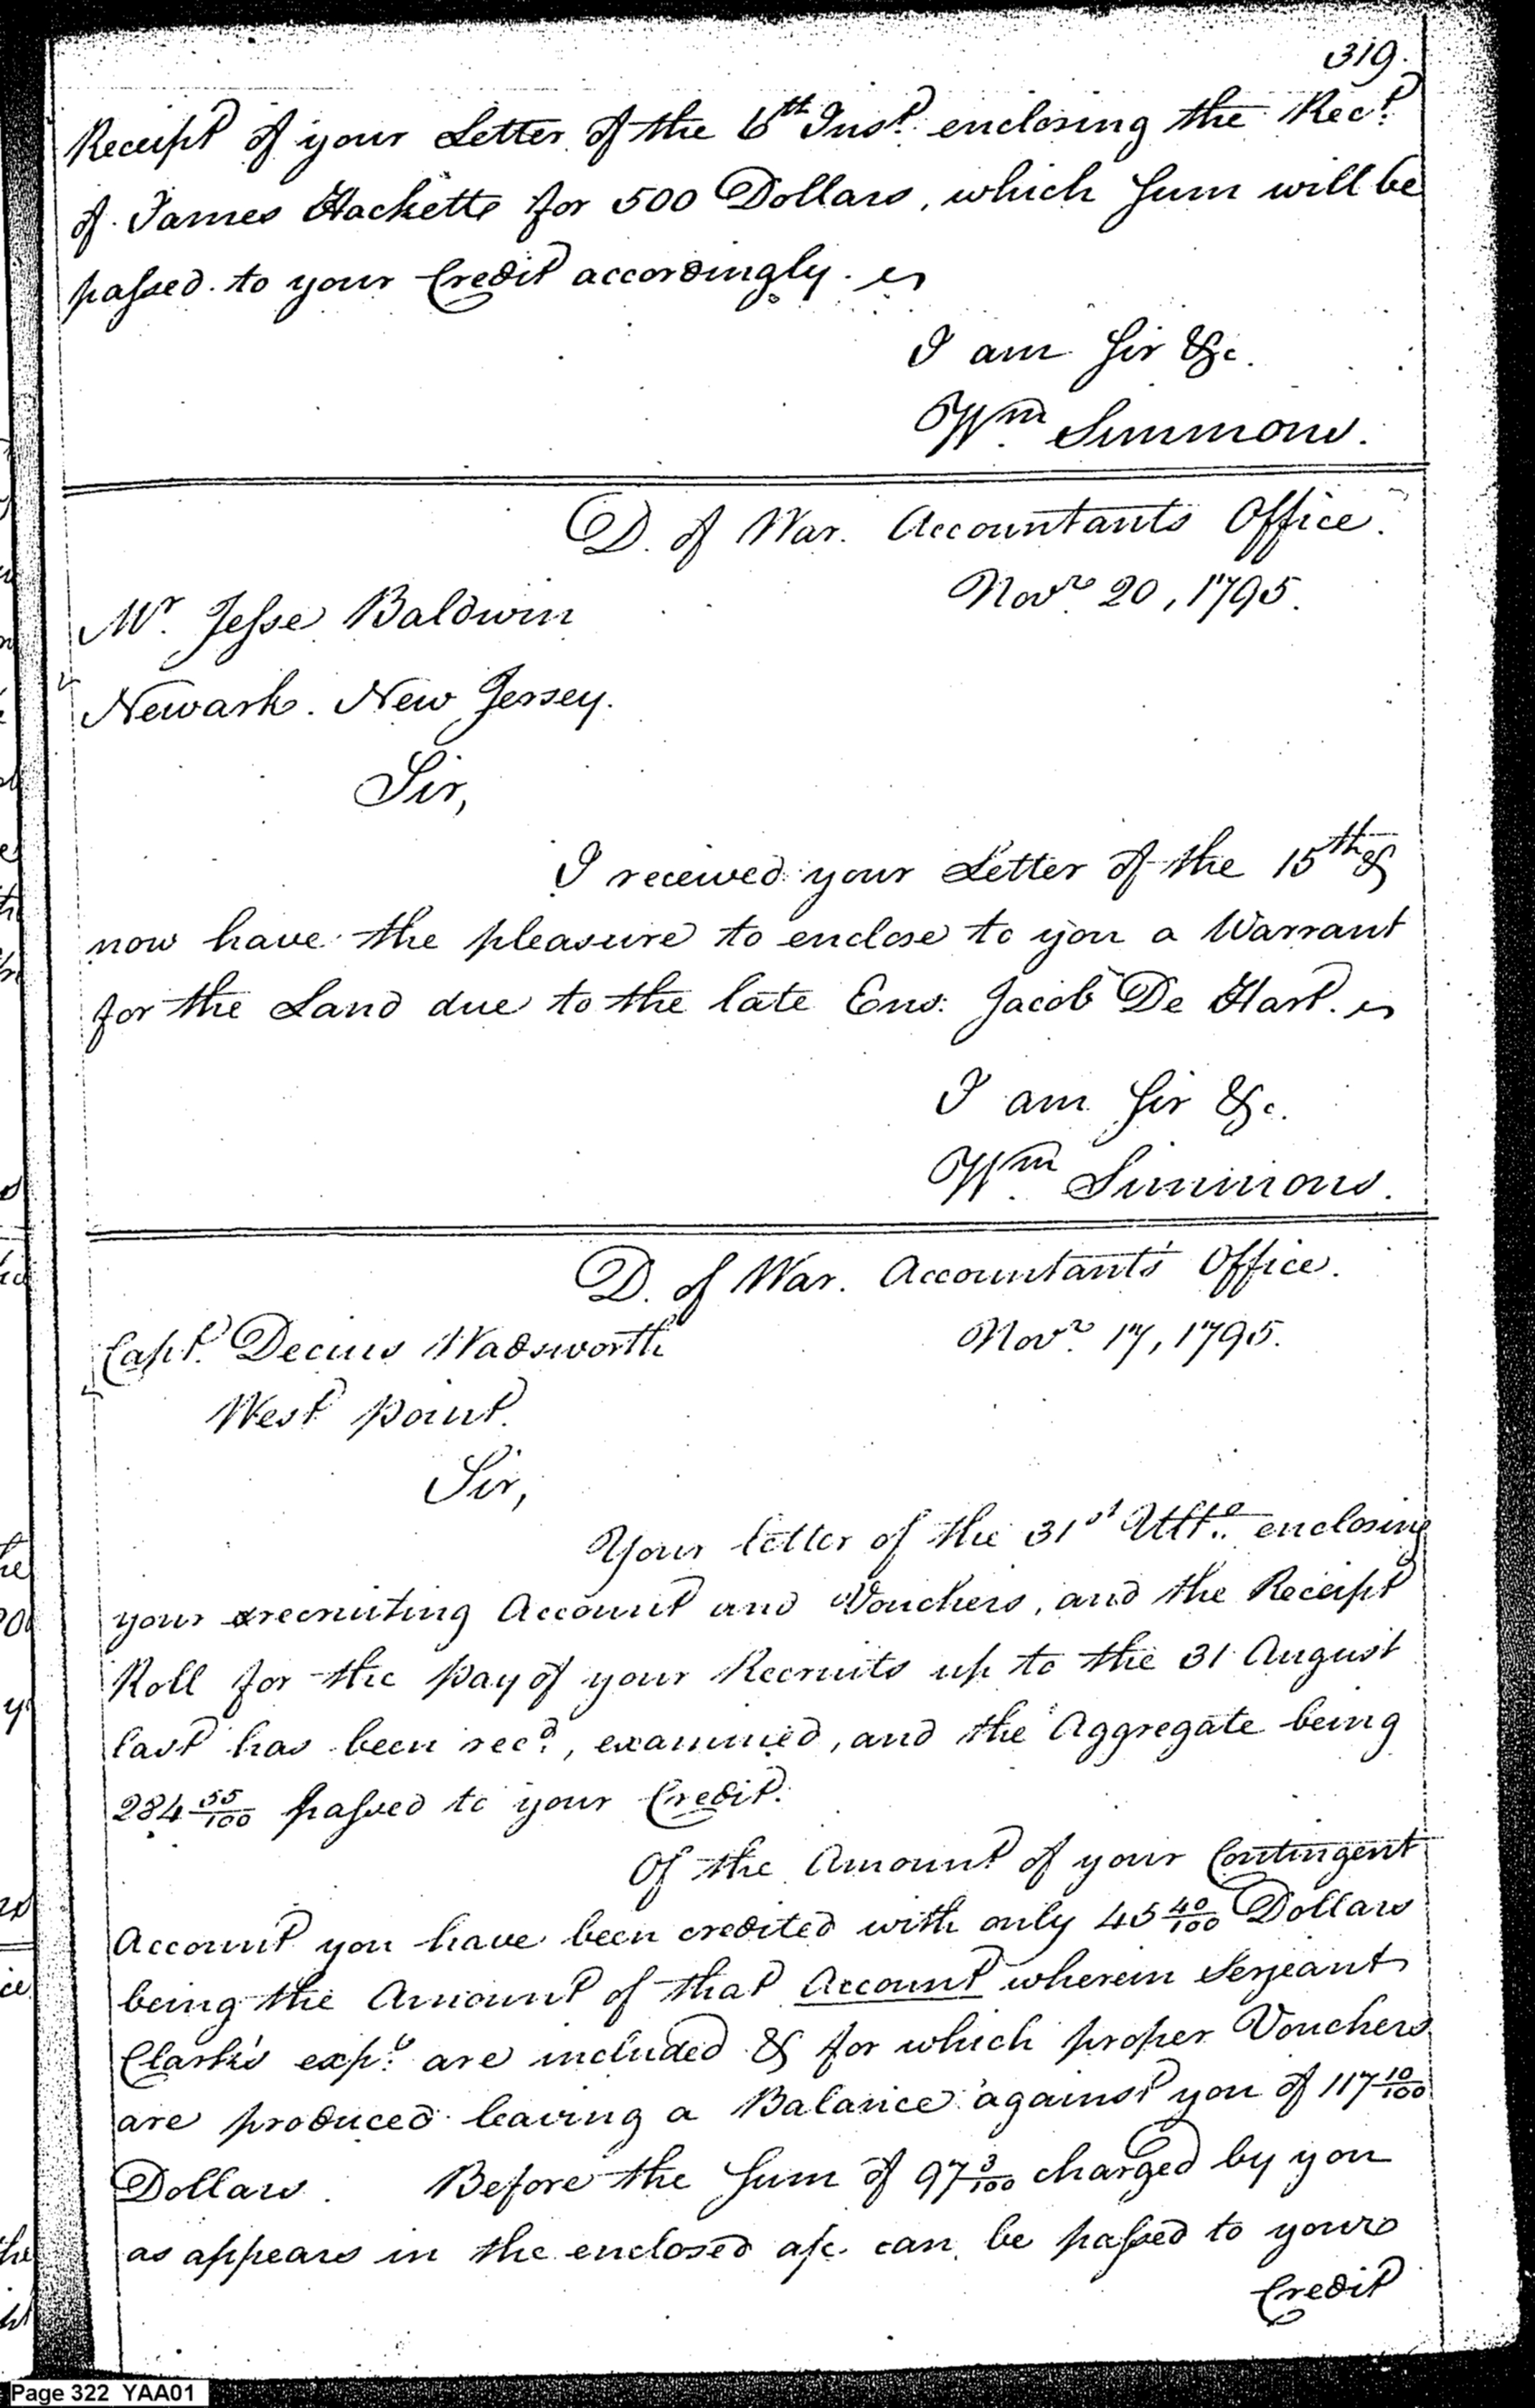 319.
Receipt of your Letter of the 6th Inst. enclosing the Rect.
of James Hacketts for 500 Dollars, which Sum will be
passed to your Credit accordingly.
I am Sir &c.
Wm. Simmons.
D. of War. Accountants Office.
Novr. 20, 1795.
Mr. Jesse Baldwin
Newark. New Jersey.
Sir,
I received your Letter of the 15th &
now have the pleasure to enclose to you a Warrant
for the Land due to the late Ens: Jacob De Hart.
I am Sir &c.
Wm. Simmons.
D. of War. Accountant's Office.
Novr. 17, 1795.
Capt. Decius Wadsworth
West Point.
Sir,
Your letter of the 31st Ulto. enclosing
your recruiting Account and Vouchers, and the Receipt
Roll for the pay of your Recruits up to the 31 August
last has been recd., examined, and the Aggregate being
284 55/100 passed to your Credit.
Of the Amount of your Contingent
Account you have been credited with only 45 40/100 Dollars
being the Amount of that Account wherein Serjeant
Clark's exps. are included & for which proper Vouchers
are produced leaving a Balance against you of 117 10/100
Dollars. Before the Sum of 97 3/100 charged by you
as appears in the enclosed a/c. can be passed to yours
Credit
Page 322 YAA01